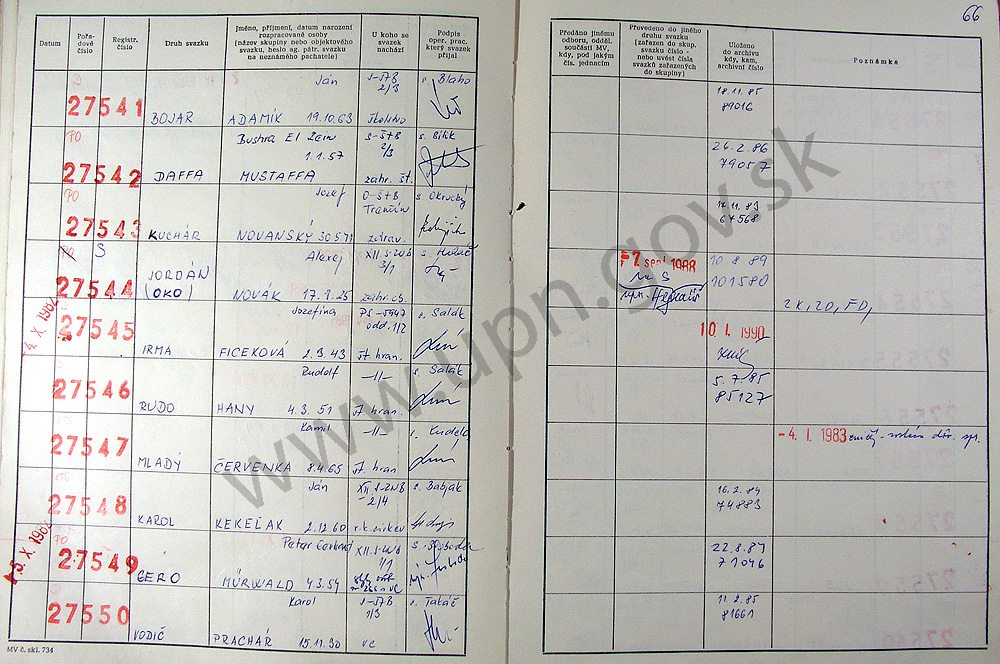 66
Datum
Pořa-
dové
číslo
Registr.
číslo
Druh svazku
Jméno, příjmení, datum narození
rozpracované osoby
(název skupiny nebo objektového
svazku, heslo ag. pátr. svazku
na neznámého pachatele)
U koho se
svazek
nachází
Podpis
oper. prac.
který svazek
přijal
Předáno jinému
odboru, odděl.
součásti MV,
kdy, pod jakým
čís. jednacím
Převedeno do jiného
druhu svazku
(zařazen do skup.
svazku číslo -
nebo uvést čísla
svazků zařazených
do skupiny)
Uloženo
do archivu
kdy, kam,
archivní číslo
Poznámka
D
27541
BOJAR
Ján
ADAMÍK 19.10.63
2/3
s. Blaho
18.11.85
89016
PO
27542
DAFFA
Bushra El Zein
1.1.57
MUSTAFFA
S-ŠtB
2/3
zahr. št.
s. Bilik
26.2.86
79057
PO
27543
KUCHÁR
Jozef
NOVANSKÝ 30.5.71
O-ŠtB
Trenčín
s. Okrucký
17.11.83
67568
PO S
27544
JORDÁN
(OKO)
Alexej
NOVÁK 17.9.25
XII.S-ZNB
3/1
zahr.ob.
-2. sept. 1988
na S
10.8.89
101580
2K, 2D, FD,
4. X. 1982
27545
IRMA
Jozefina
FICEKOVÁ 2.3.43
PS-5947
odd.1/2
št. hran.
s. Salák
10. I. 1990
27546
RUDO
Rudolf
HANY 4.3.51
-11-
št. hran.
s. Salák
5.7.85
85127
27547
MLADÝ
Kamil
ČERVENKA 8.4.65
-11-
št. hran
s. Kudela
-4. I. 1983
27548
KAROL
Ján
KEKEĽAK 2.12.60
XII S-ZNB
2/4
r.k. cirkev
s. Babják
16.2.84
74883
-5. X. 1982
PO
27549
GERO
Peter Gerhard
MÜRWALD 4.3.54
XII.S-ZNB
1/1
22.8.84
71046
27550
VODIČ
Karol
PRACHÁR 15.11.30
1/3
VC
s. Takáč
11.2.85
81661
MV č. skl. 734
www.upn.gov.sk